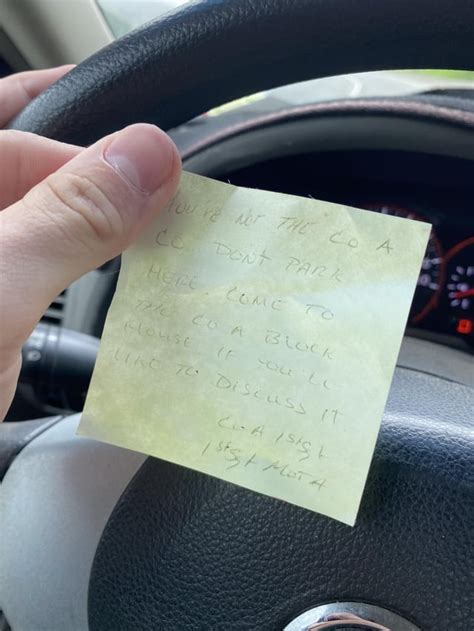 YOU'RE NOT THE CO A
CO. DON'T PARK
HERE. COME TO
THE CO A BLOCK
HOUSE IF YOU'LL
LIKE TO DISCUSS IT
Co. A 1sgt
1sgt MOTA